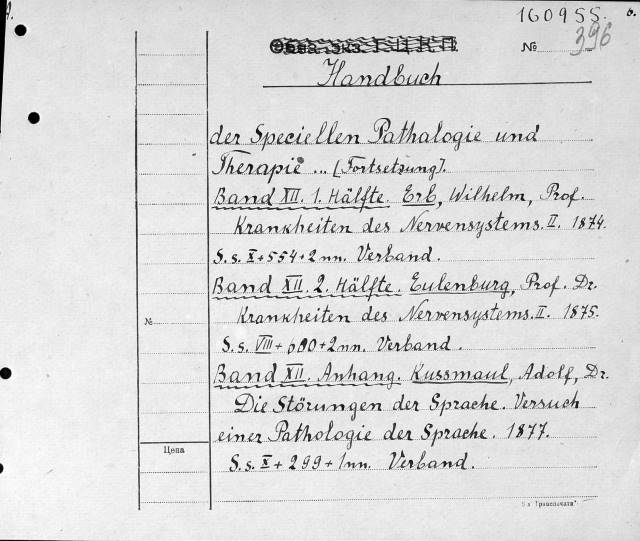 160955.
№ 396
Handbuch
der Speciellen Pathalogie und
Therapie ... [Fortsetzung].
Band XII. 1. Hälfte. Erb, Wilhelm, Prof.
Krankheiten des Nervensystems. II. 1874.
S.s. X + 554 + 2 nn. Verband.
Band XII. 2. Hälfte. Eulenburg, Prof. Dr.
Krankheiten des Nervensystems. II. 1875.
№
S.s. VIII + 680 + 2 nn. Verband.
Band XII. Anhang. Kussmaul, Adolf, Dr.
Die Störungen der Sprache. Versuch
einer Pathologie der Sprache. 1877.
Цена
S.s. X + 299 + 1 nn. Verband.